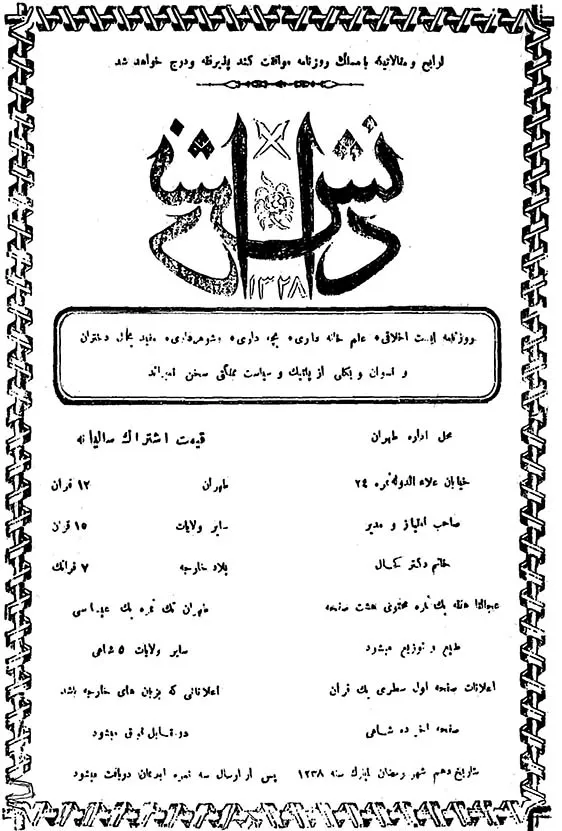 لوایح و مقالاتیکه با مسلك روزنامه موافقت کند پذیرفته ودرج خواهد شد
دانش
۱۳۲۸
روزنامه ایست اخلاقی، علم خانه داری، بچه داری، شوهرداری، مفید بحال دختران
و نسوان و بکلی از پلتیك و سیاست مملکتی سخن نمیراند
محل اداره طهران
خیابان علاء الدوله نمره ۲٤
صاحب امتیاز و مدیر
خانم دکتر کحال
عجالتا هفته یك نمره محتوی هشت صفحه
طبع و توزیع میشود
اعلانات صفحه اول سطری یك قران
صفحه اخر ده شاهی
قیمت اشتراك سالیانه
طهران ۱۲ قران
سایر ولایات ۱٥ قران
بلاد خارجه ۷ فرانك
طهران تك نمره یك عباسی
سایر ولایات ٥ شاهی
اعلاناتی که بزبان های خارجه باشد
دو مقابل میشود
بتاریخ دهم شهر رمضان سنه ۱۲۳۸ پس از ارسال سه نمره دریافت میشود